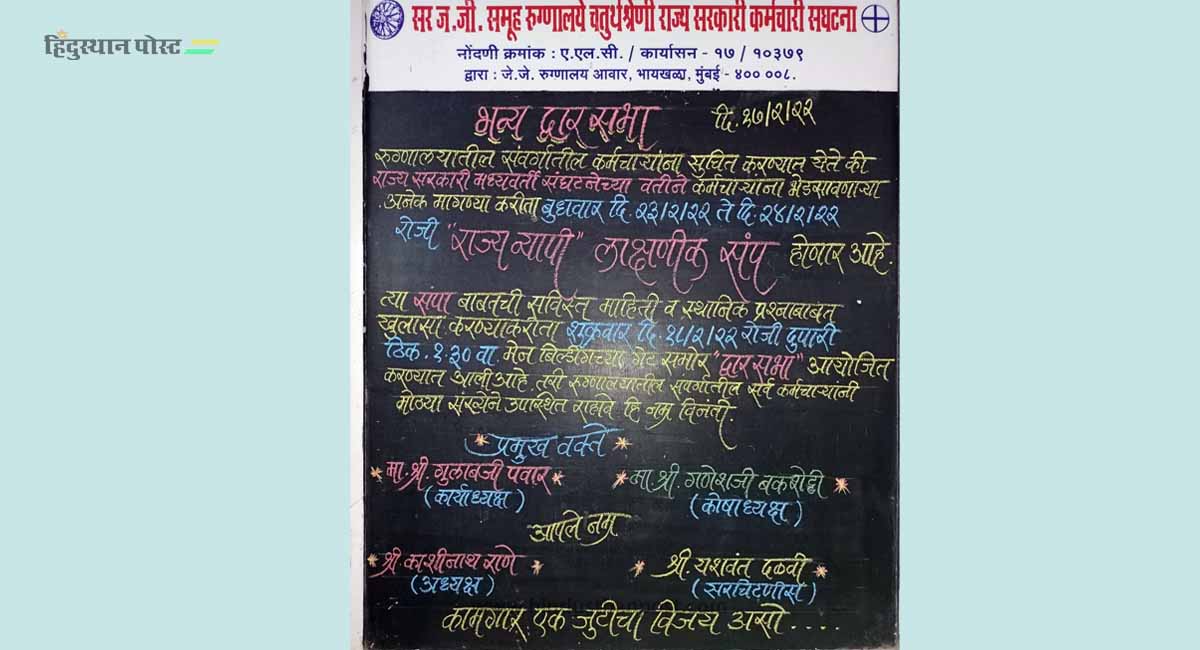 हिंदुस्थान पोस्ट
सर ज.जी. समूह रुग्णालये चतुर्थश्रेणी राज्य सरकारी कर्मचारी सघटना
नोंदणी क्रमांक : ए.एल.सी. / कार्यासन - १७ / १०३७९
द्वारा : जे.जे. रुग्णालय आवार, भायखळा, मुंबई - ४०० ००८.
भव्य द्वार सभा
दि.१७/२/२२
रुग्णालयातील संवर्गातील कर्मचाऱ्यांना सुचित करण्यात येते की
राज्य सरकारी मध्यवर्ती संघटनेच्या वतीने कर्मचाऱ्याना भेडसावणाऱ्या
अनेक मागण्या करीता बुधवार दि.२३/२/२२ ते दि.२४/२/२२
रोजी "राज्य व्यापी" लाक्षणीक संप होणार आहे.
त्या सपा बाबतची सविस्त माहिती व स्थानिक प्रश्नाबाबत
खुलासा करण्याकरीता शुक्रवार दि.१८/२/२२ रोजी दुपारी
ठिक.१.३० वा. मेन बिल्डींगच्या गेट समोर "द्वार सभा" आयोजित
करण्यात आली आहे. तरी रुग्णालयातील सवर्गातील सर्व कर्मचाऱ्यांनी
मोठ्या संख्येने उपस्थित राहावे हि नम्र विनंती.
प्रमुख वक्ते
मा.श्री.गुलाबजी पवार
मा.श्री.गणेशजी
(कार्याध्यक्ष)
(कोषाध्यक्ष)
आपले नम्र
श्री.काशीनाथ राणे
श्री.यशवंत दळवी
(अध्यक्ष)
(सरचिटणीस)
कामगार एक जुटीचा विजय असो....